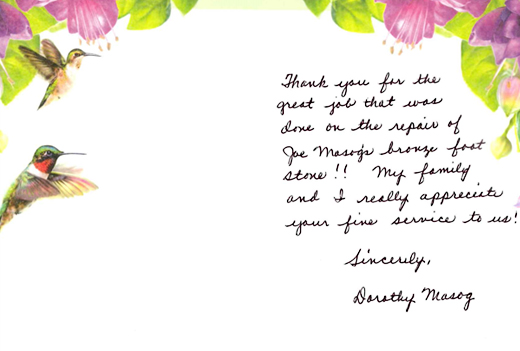 Thank you for the
great job that was
done on the repair of
Joe Masog's bronze foot
stone!! My family
and I really appreciate
your fine service to us!
Sincerely,
Dorothy Masog